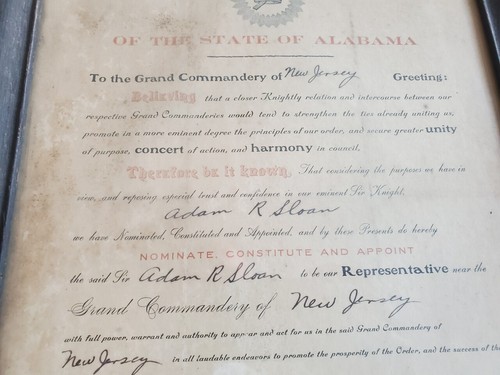 OF THE STATE OF ALABAMA
To the Grand Commandery of New Jersey Greeting:
Believing that a closer Knightly relation and intercourse between our
respective Grand Commanderies would tend to strengthen the ties already uniting us;
promote in a more eminent degree the principles of our order, and secure greater unity
of purpose, concert of action, and harmony in council.
Therefore be it known, That considering the purposes we have in
view, and reposing especial trust and confidence in our eminent Sir Knight,
Adam R Sloan
we have Nominated, Constituted and Appointed, and by these Presents do hereby
NOMINATE, CONSTITUTE AND APPOINT
the said Sir Adam R Sloan to be our Representative near the
Grand Commandery of New Jersey
with full power, warrant and authority to appear and act for us in the said Grand Commandery of
New Jersey in all laudable endeavors to promote the prosperity of the Order, and the success of the